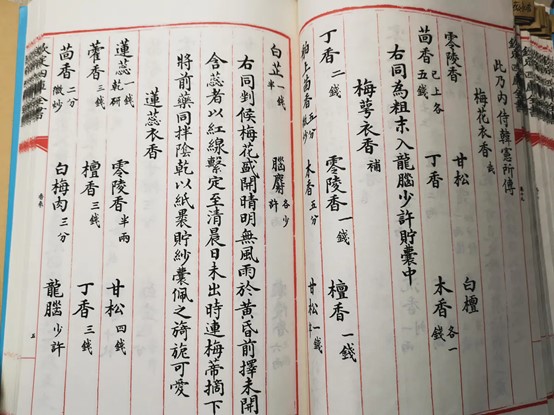 欽定四庫全書
此乃內侍韓憲所傳
梅花衣香 武
零陵香 甘松 白檀
茴香 已上各五錢 丁香 木香 各一錢
右同為粗末入龍腦少許貯囊中
梅萼衣香 補
丁香 二錢 零陵香 一錢 檀香 一錢
舶上茴香 五分微炒 木香 五分 甘松 一錢半
白芷 一錢半 腦麝 各少許
右同剉候梅花盛開晴明無風雨於黃昏前擇未開
含蕊者以紅線繫定至清晨日未出時連梅蒂摘下
將前藥同拌陰乾以紙裹貯紗囊佩之旖旎可愛
蓮蕊衣香
蓮蕊 一錢乾研 零陵香 半兩 甘松 四錢
藿香 三錢 檀香 三錢 丁香 三錢
茴香 二分微炒 白梅肉 三分 龍腦 少許
欽定四庫全書 五